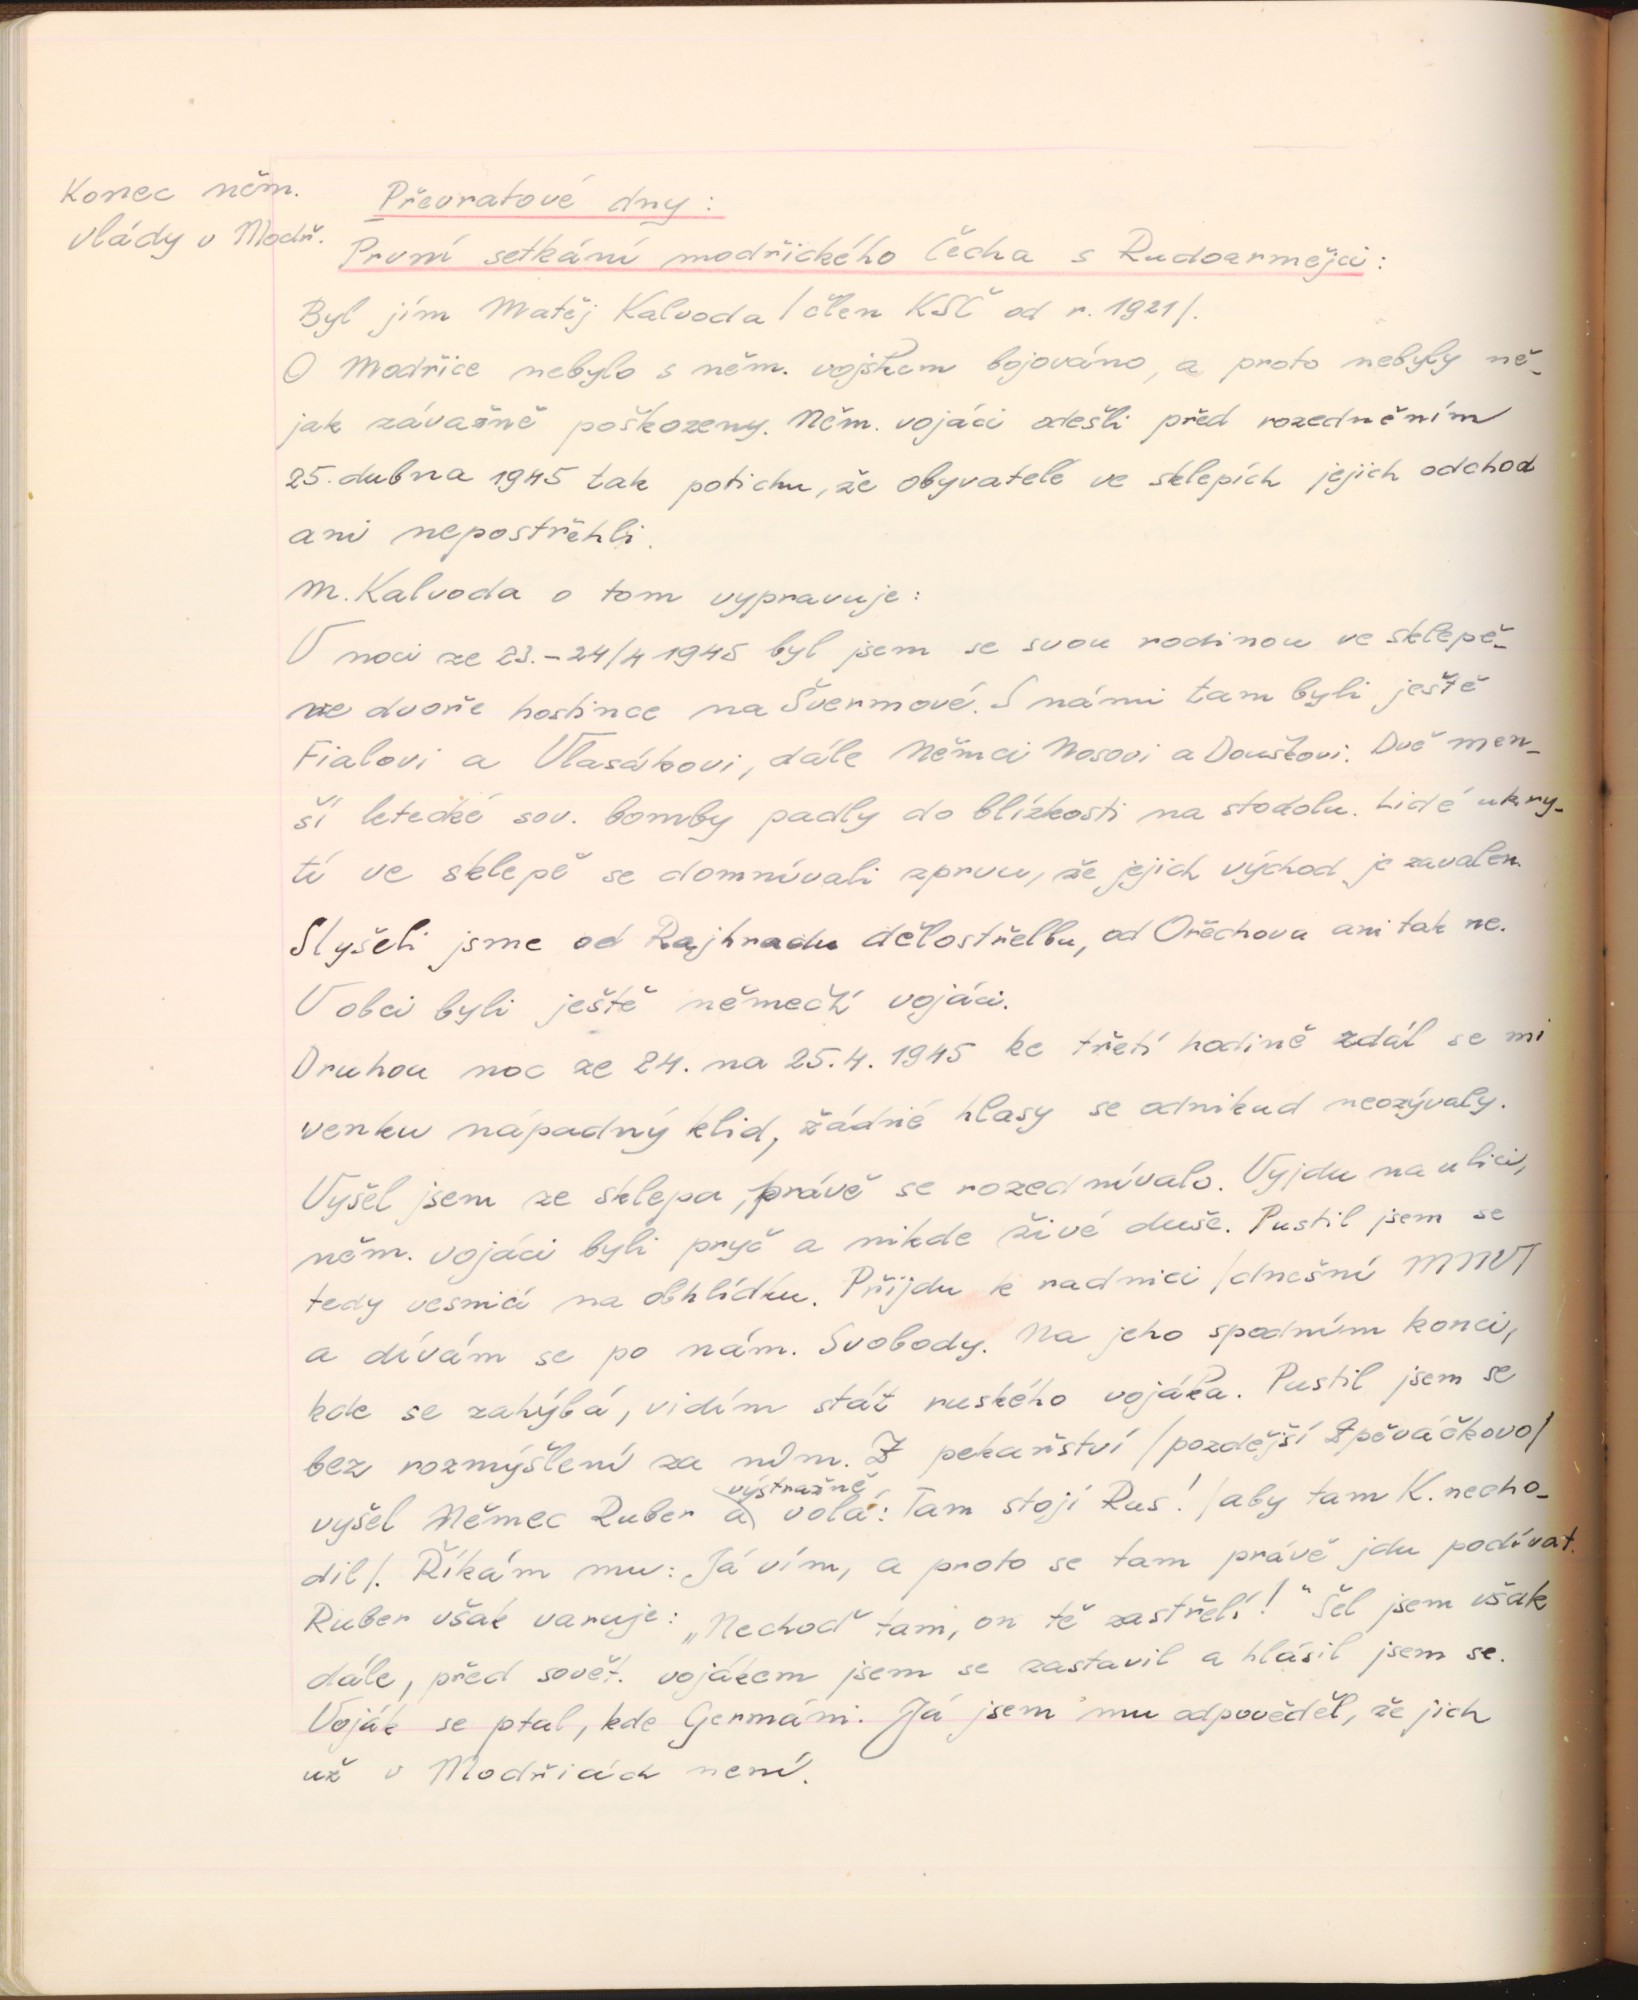 Konec něm.
vlády v Modř.
Převratové dny:
První setkání modřického Čecha s Rudoarmějci:
Byl jím Matěj Kalvoda /člen KSČ od r. 1921/.
O Modřice nebylo s něm. vojskem bojováno, a proto nebyly ně-
jak závažně poškozeny. Něm. vojáci odešli před rozedněním
25. dubna 1945 tak potichu, že obyvatelé ve sklepích jejich odchod
ani nepostřehli.
M. Kalvoda o tom vypravuje:
V noci ze 23.-24/4 1945 byl jsem se svou rodinou ve sklepě-
ve dvoře hostince na Švermové. S námi tam byli ještě
Fialovi a Vlasákovi, dále Němci Nosovi a Douškovi. Dvě men-
ší letecké sov. bomby padly do blízkosti na stodolu. Lidé ukry-
tí ve sklepě se domnívali zprvu, že jejich východ je zavalen.
Slyšeli jsme od Rajhradu dělostřelbu, od Ořechova ani tak ne.
V obci byli ještě němečtí vojáci.
Druhou noc ze 24. na 25.4.1945 ke třetí hodině zdál se mi
venku nápadný klid, žádné hlasy se odnikud neozývaly.
Vyšel jsem ze sklepa, právě se rozednívalo. Vyjdu na ulici,
něm. vojáci byli pryč a nikde živé duše. Pustil jsem se
tedy vesnicí na obhlídku. Přijdu k radnici /dnešní MNV/
a dívám se po nám. Svobody. Na jeho spodním konci,
kde se zahýbá, vidím stát ruského vojáka. Pustil jsem se
bez rozmýšlení za ním. Z pekařství /pozdější Zpěváčkovo/
výstražně
vyšel Němec Ruber a volá: Tam stojí Rus! /aby tam K. necho-
dil/. Říkám mu: Já vím, a proto se tam právě jdu podívat.
Ruber však varuje: „Nechoď tam, on tě zastřelí!" Šel jsem však
dále, před sovět. vojákem jsem se zastavil a hlásil jsem se.
Voják se ptal, kde Germáni. Já jsem mu odpověděl, že jich
už v Modřicích není.